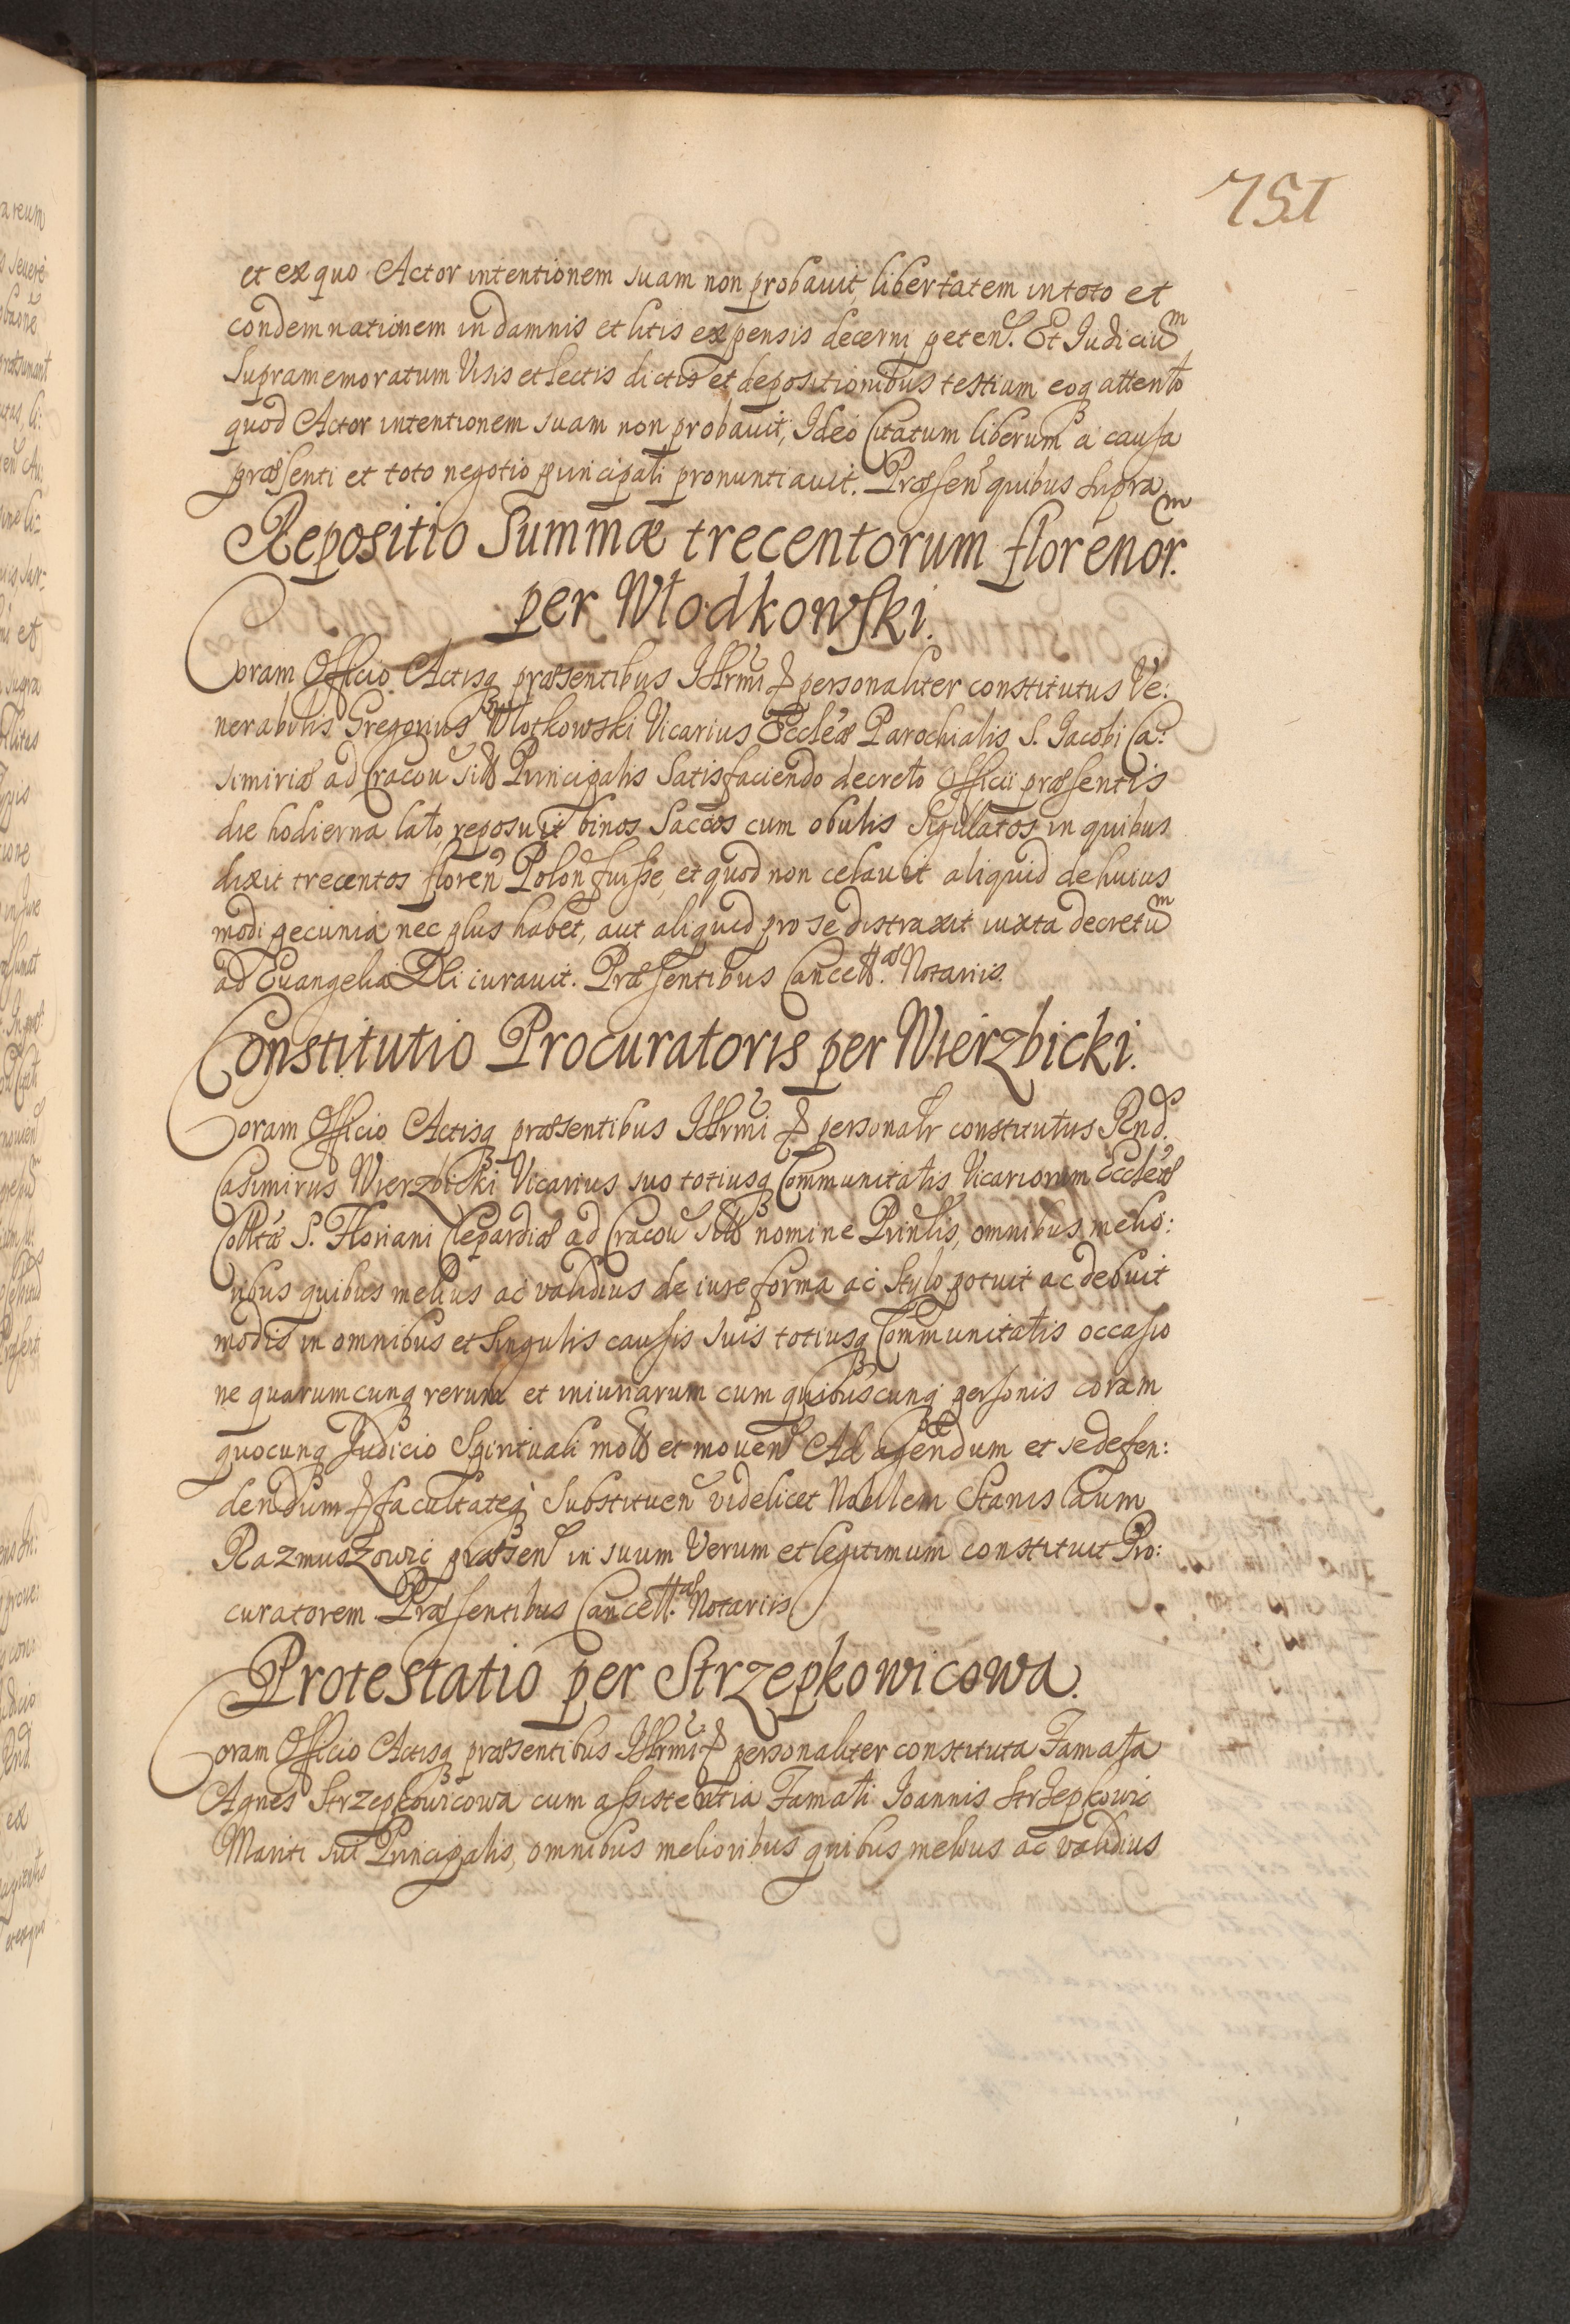 751
et ex quo Actor intentionem suam non probavit, libertatem in toto et
condemnationem in damnis et litis expensis decerni peten. Et Judicium
Supramemoratum Visis et lectis dictis et depositionibus testium eoq attento
quod Actor intentionem suam non probavit, Ideo Citatum liberum a causa
præsenti et toto negotio principali pronuntiavit. Præsen quibus supra
Repositio Summæ trecentorum florenor.
per Włodkowski.
Coram Officio Actisq præsentibus personaliter constitutus Ve:
nerabilis Gregorius Wlotkowski Vicarius Eccleæ Parochialis S. Jacobi Ca:
simiriæ ad Cracou sitt Principalis Satisfaciendo decreto Officii præsentis
die hodierna lato, reposuit binos Saccos cum obulis Sigillatos in quibus
dixit trecentos floren Polon fuisse, et quod non celavit aliquid de huius
modi pecunia, nec plus habet, aut aliquid pro se distraxit iuxta decretum
ad Evangelia Dei iuravit. Præsentibus Cancell.æ Notariis.
Constitutio Procuratoris per Wierzbicki.
Coram Officio Actisq præsentibus personalr constitutus Rnd.
Casimirus Wierzbicki Vicarius suo totiusq Communitatis Vicariorum Eccleæ
Colltæ S. Floriani Clepardiæ ad Cracou sitt nomine Prinlis, omnibus melio:
ribus quibus melius ac validius de iure forma ac Stylo potuit ac debuit
modis in omnibus et Singulis causis suis totiusq Communitatis occasio
ne quarumcunq rerum et iniuriarum cum quibuscunq personis coram
quocunq Judicio Spirituali mott et moven Ad agendum et se defen:
dendum facultateq Substituen videlicet Nobilem Stanislaum
Razmuszowic præsen in suum Verum et legitimum constituit Pro:
curatorem Præsentibus Cancell.æ Notariis
Protestatio per Strzepkowicowa.
Coram Officio Actisq præsentibus personaliter constituta Famata
Agnes Strzepkowicowa cum assistentia Famati Joannis Strzepkowic
Mariti sui Principalis, omnibus melioribus quibus melius ac validius